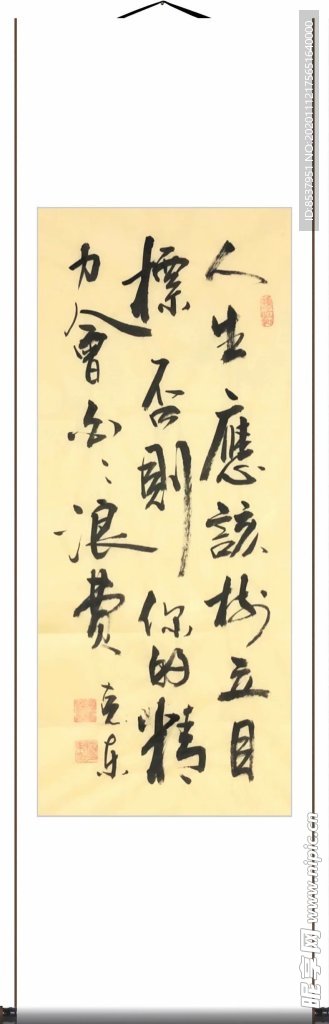 人生應該樹立目
標否則你的精
力會白〻浪費
ID:8537951 NO:20201112175651640000
昵享网 www.nipic.cn